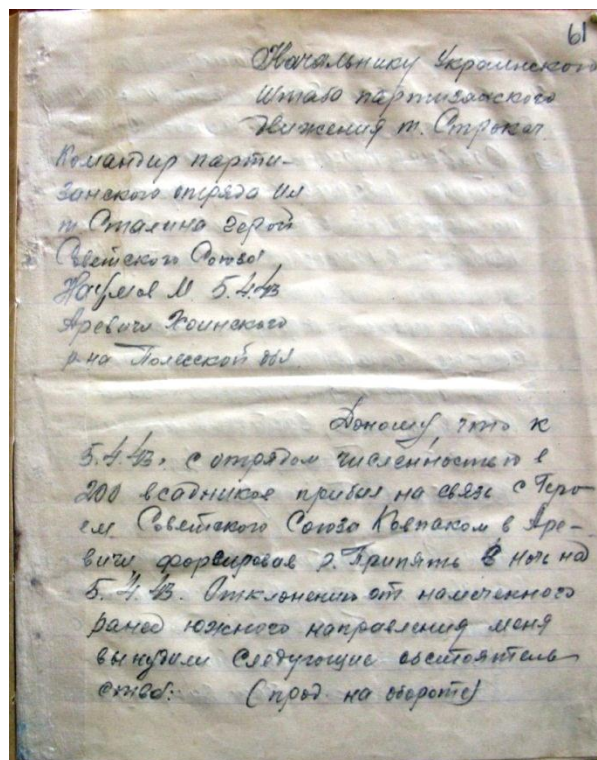 61
Начальнику Украинского
штаба партизанского
движения т. Строкач
Командир парти-
занского отряда им
т Сталина герой
Советского Союза
Наумов М 5.4.43
Аревичи Хоинского
р-на Полесской обл
Доношу что к
5.4.43. с отрядом численностью в
200 всадников прибыл на связь с Геро-
ем Советского Союза Ковпаком в Аре-
вичи форсировав р. Припять в ночь на
5.4.43. Отклонению от намеченного
ранее южного направления меня
вынудили следующие обстоятель
ства: (прод. на обороте)